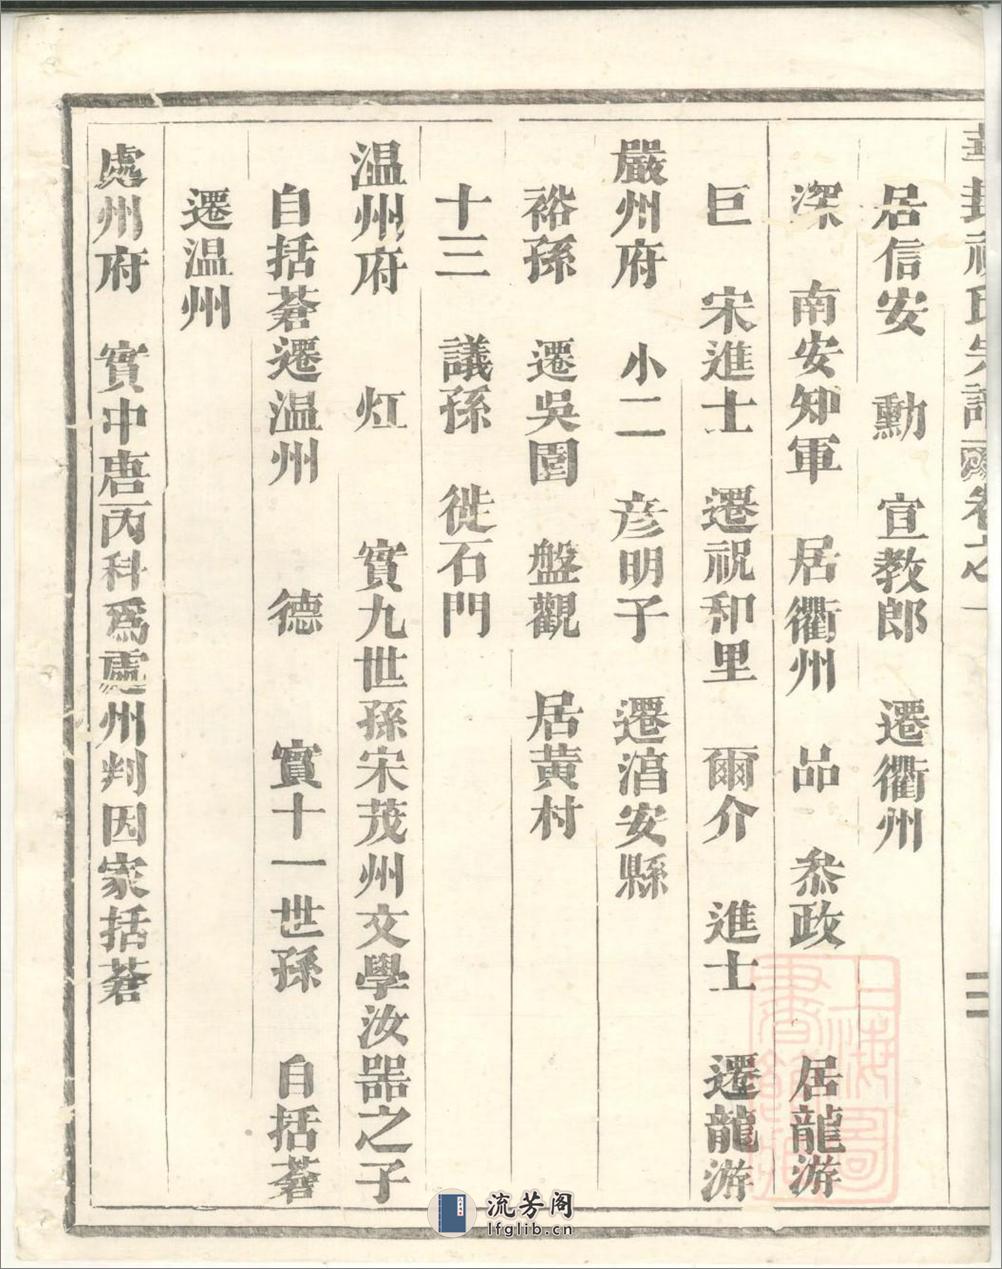 祝氏宗譜 卷之一
二
居信安 勳 宣教郎 遷衢州
深 南安知軍 居衢州 品 叅政 居龍游
巨 宋進士 遷祝和里 爾介 進士 遷龍游
嚴州府 小二 彦明子 遷淯安縣
裕孫 遷吳圊 盤觀 居黃村
十三 議孫 徙石門
温州府 灴 實九世孫宋茂州文學汝噐之子
自括蒼遷温州 德 實十一世孫 自括蒼
遷温州
處州府 實中唐丙科爲處州判因家括蒼
上海圖書館藏
流芳阁
lfglib.cn